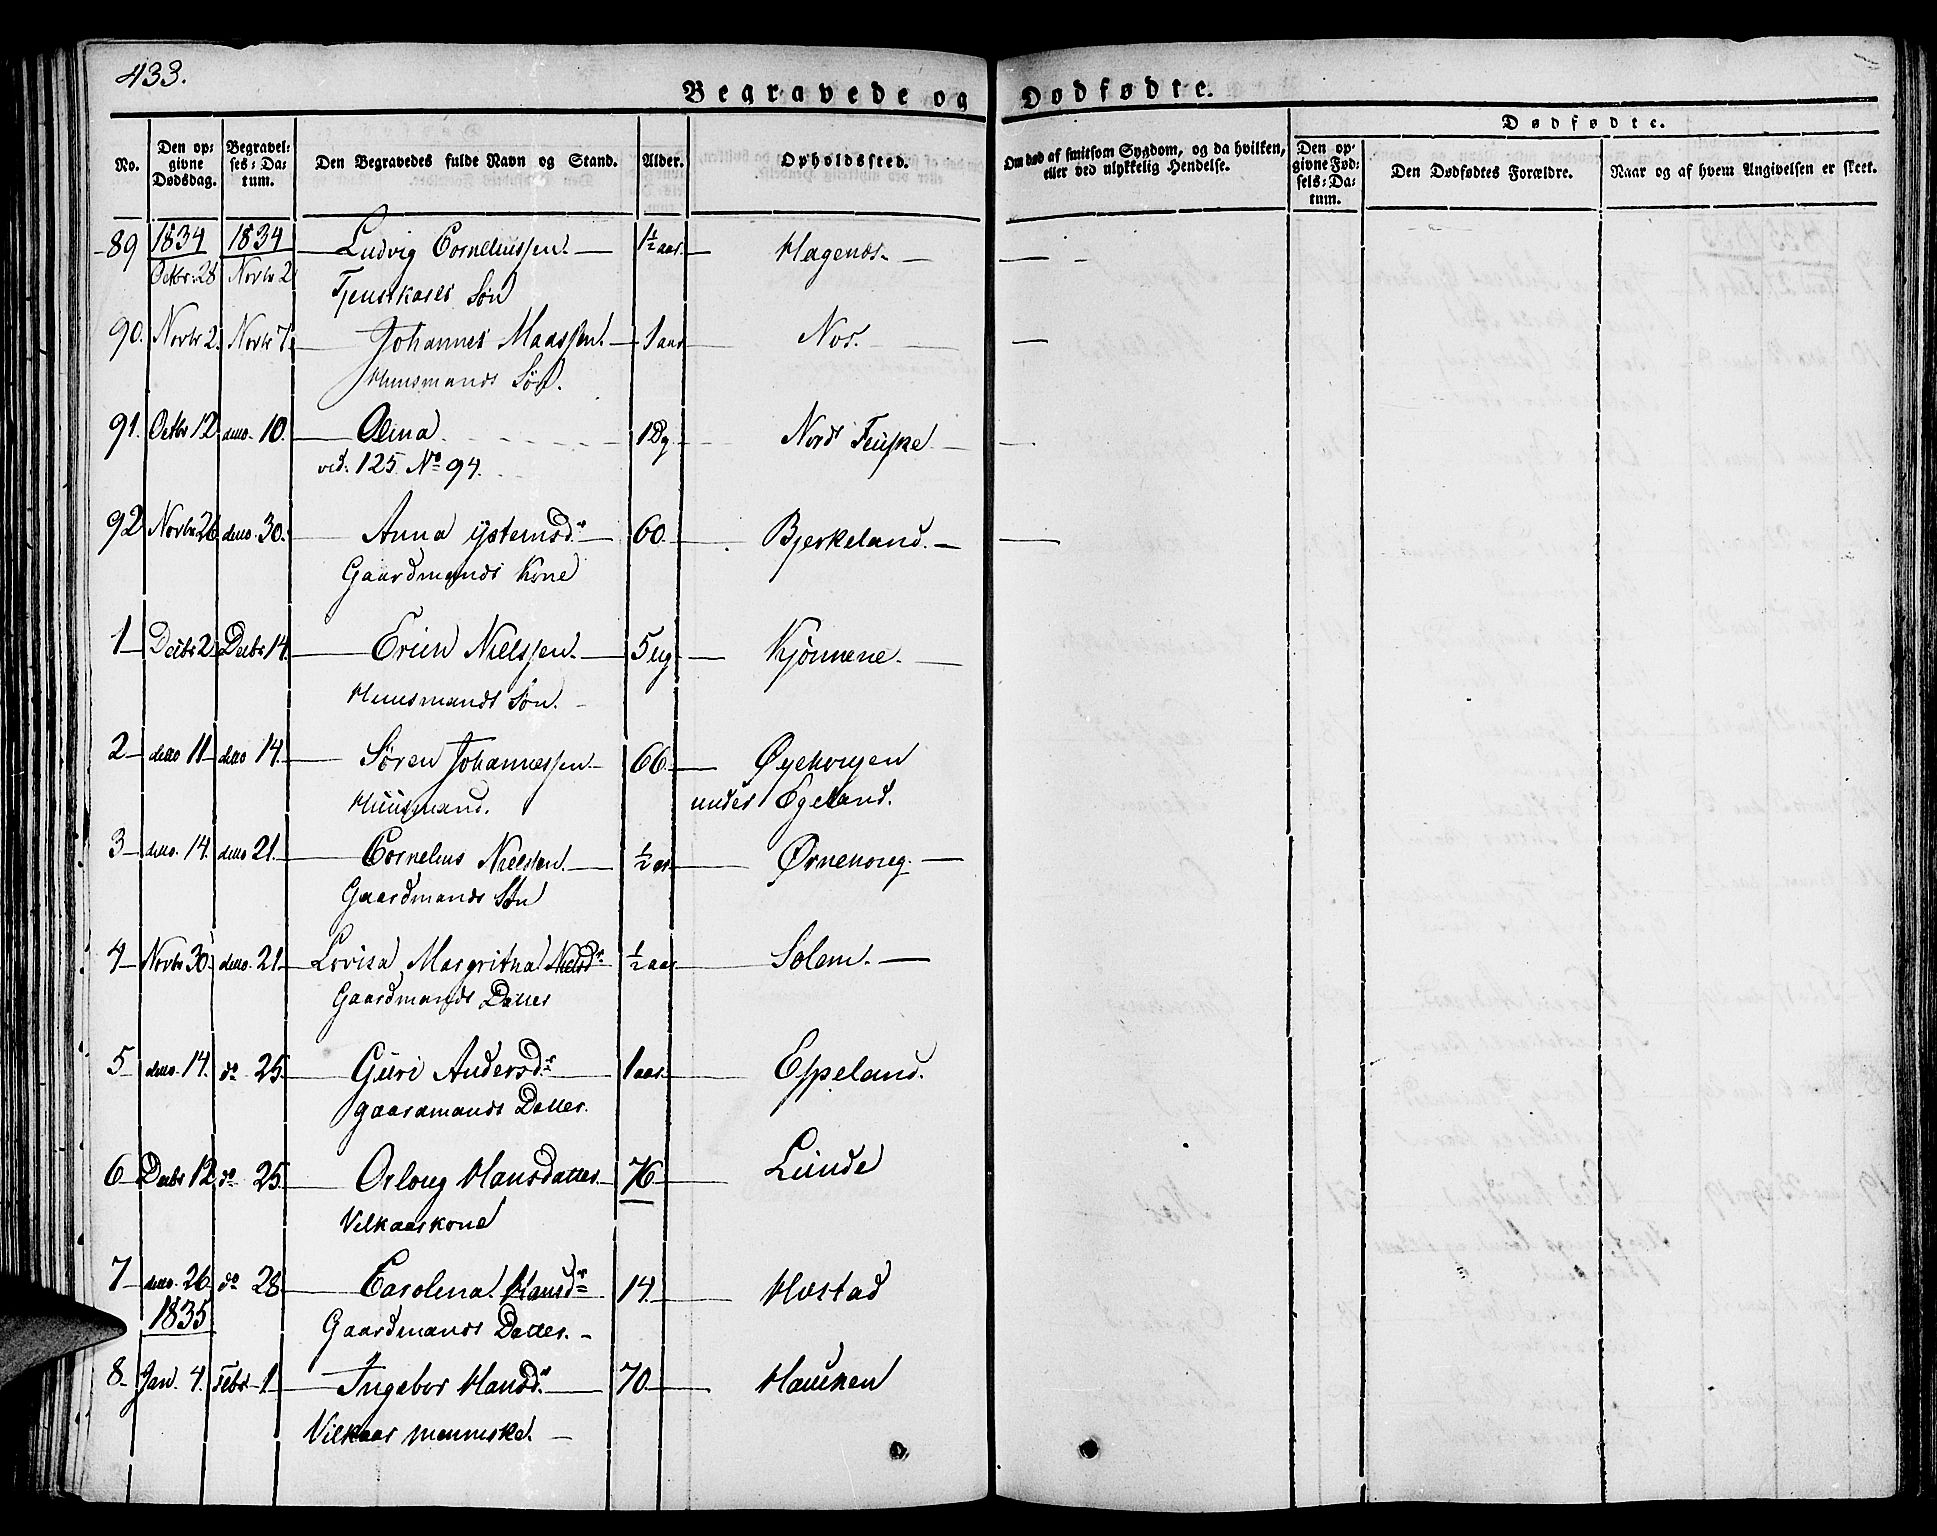 433.
Begravede og Dødfødte.
No.
Den opgivne Dødsdag.
Begravelses-Datum.
Den Begravedes fulde Navn og Stand.
Alder.
Opholdssted.
Om død af smitsom Sygdom, og da hvilken, eller ved ulykkelig Hendelse.
Dødfødte.
Den opgivne Fødsels-Datum.
Den Dødfødtes Forældre.
Naar og af hvem Angivelsen er skeet.
89 1834 1834 Ludvig Corneliussen. 1½ aar Hagenes.
Octbr: 28 Novbr 2
Søn
90. Novbr 2. Novbr 7. Johannes Maassen. 1 aar Nos.
Huusmands Søn.
91. Octbr 12 detto. 10. 1 Dg. Nordr
vid. 125 No 94.
92 Novbr 26 detto. 30. Anna Ystensdr. 60 Bjerkeland.
Gaardmands Kone
1 Decbr 2 Decbr 14. Erich Nielssen. 5 ug
Huusmands Søn.
2 detto 11 detto 14. Søren Johannessen. 66.
Huusmand. under Egeland.
3 detto. 14. detto 21. Cornelius Nielssen. ½ ar
Gaardmands Søn
4 Novbr 30. detto. 21 Lovisa Margritha Nielsdr ½ aar Solem.
Gaardmands Datter
5 detto. 14. do 25. Guri Andersdr 1 aar. Eppeland.
Gaardmands Datter.
6 Decbr 12 do 25. Orloug Hansdatter. 76 Lunde
Vilkaarskone
7 detto. 26. do 28. Carolena Hansdr 14. Hostad
1835 Gaardmands Datter.
8 Jan. 4. Febr 1 Ingebor Hansdr. 70. Hauknen
Vilkaar menneske.